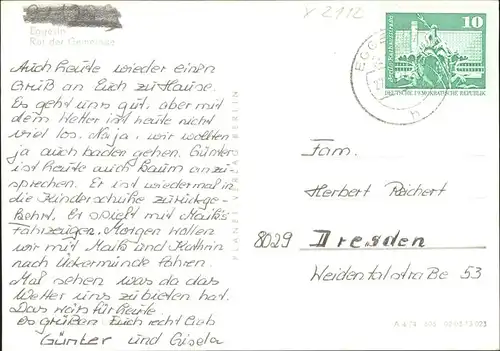 V 2112
Eggesin
Rat der Gemeinde
Auch heute wieder einen
Gruß an Euch zu Hause.
Es geht uns gut, aber mit
dem Wetter ist heute nicht
viel los. Naja, wir wollten
ja auch baden gehen. Günter
ist heute auch kaum anzu
sprechen. Er ist wiedermal in
die Kinderschuhe zurückge-
kehrt. Er spielt mit Maik's
Fahrzeugen. Morgen wollen
wir mit Maik und Kathrin
nach Ückermünde fahren.
Mal sehen was da das
Wetter uns zu bieten hat.
Das wärs für heute.
es grüßen Euch recht lieb
Günter und Gisela
PLANET VERLAG BERLIN
EGG
10
DEUTSCHE DEMOKRATISCHE REPUBLIK
b
Fam.
Herbert Reichert
8029 Dresden
Weidentalstraße 53